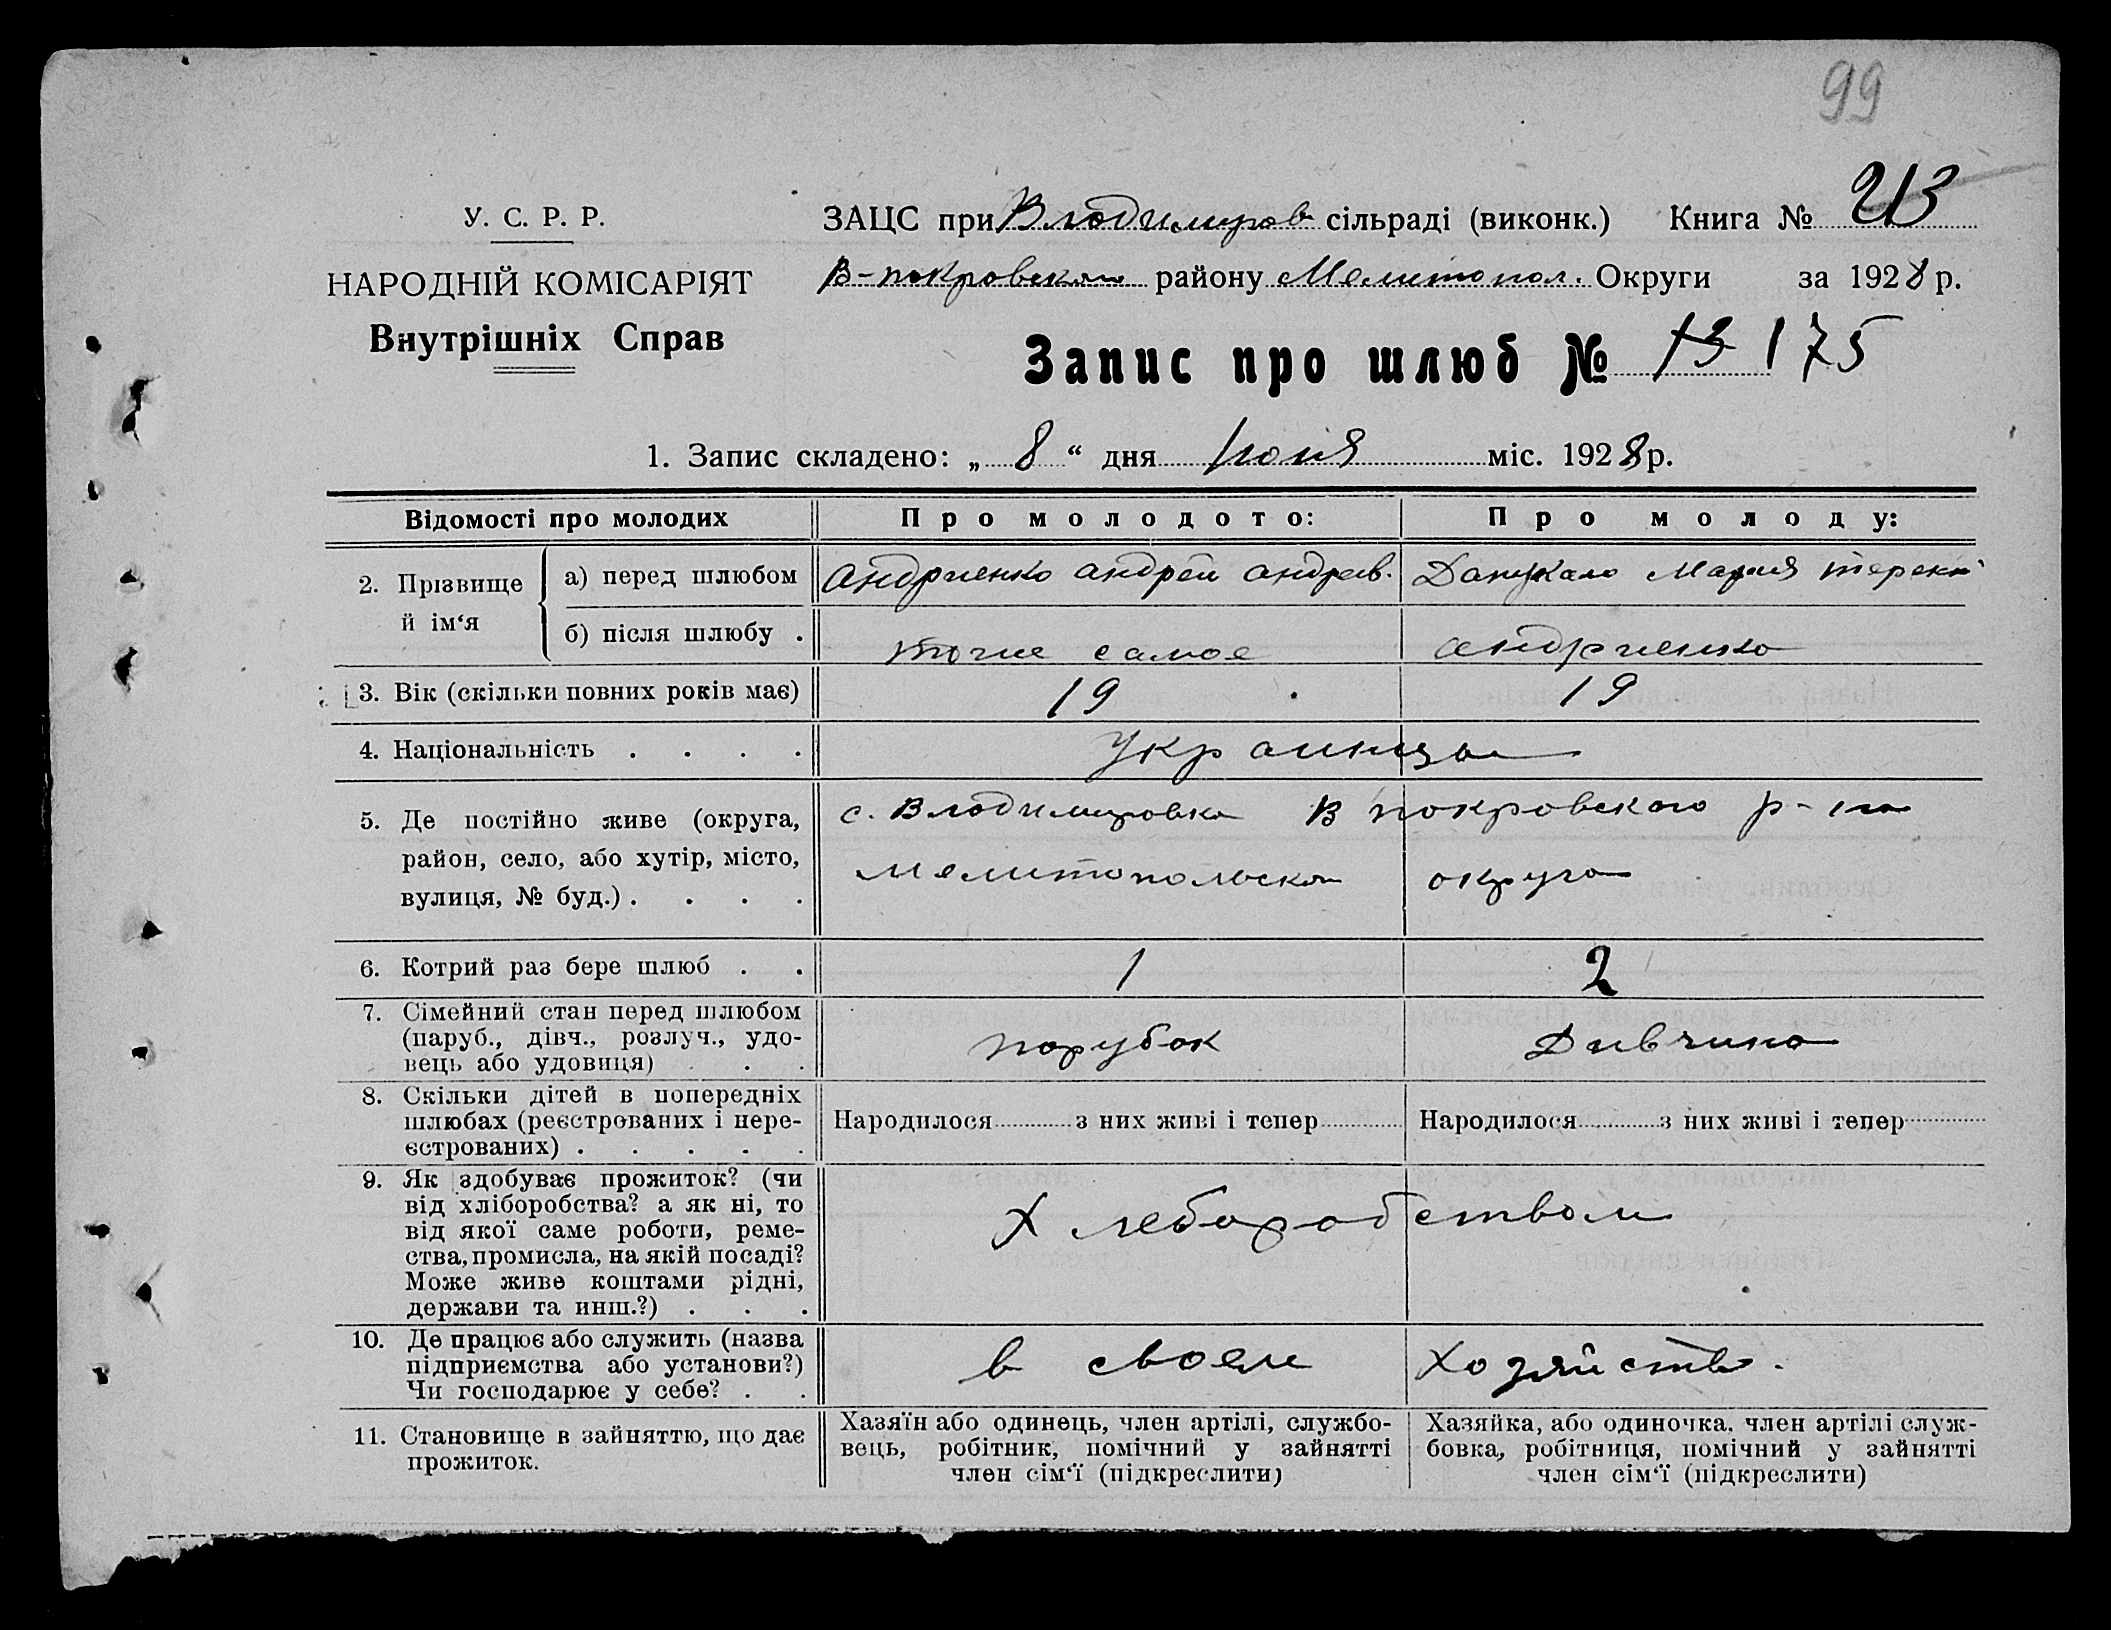 99
У. С. Р. Р.
НАРОДНІЙ КОМІСАРІЯТ
Внутрішніх Справ
ЗАЦС при Владимиров сільраді (виконк.) Книга № 213
В-покровского району Мелитопол. Округи за 1928 р.
Запис про шлюб № 13 175
1. Запис складено: „ 8 “ дня Июня міс. 1928 р.
Відомості про молодих
Про молодого:
Про молоду:
2. Прізвище й ім‘я
а) перед шлюбом
Андриенко Андрей Андреев.
Мария
б) після шлюбу .
тоже самое
Андриенко
3. Вік (скільки повних років має)
19
19
4. Національність . . . .
Украинцы
5. Де постійно живе (округа,
район, село, або хутір, місто,
вулиця, № буд.) . . . .
с. Владимировка В покровского р-на
Мелитопольского округа
6. Котрий раз бере шлюб . .
1
2
7. Сімейний стан перед шлюбом
(паруб., дівч., розлуч., удо-
вець або удовиця) . . .
парубок
Дивчина
8. Скільки дітей в попередніх
шлюбах (реєстрованих і нере-
єстрованих) . . . . .
Народилося ........ з них живі і тепер ........
Народилося ........ з них живі і тепер ........
9. Як здобуває прожиток? (чи
від хліборобства? а як ні, то
від якої саме роботи, реме-
ства, промисла, на якій посаді?
Може живе коштами рідні,
держави та инш.?) . . .
Хлеборобством
10. Де працює або служить (назва
підприємства або установи?)
Чи господарює у себе? . .
в своем хозяйстве.
11. Становище в зайняттю, що дає
прожиток.
Хазяїн або одинець, член артілі, службо-
вець, робітник, помічний у зайнятті
член сім‘ї (підкреслити)
Хазяйка, або одиночка, член артілі служ-
бовка, робітниця, помічний у зайнятті
член сім‘ї (підкреслити)